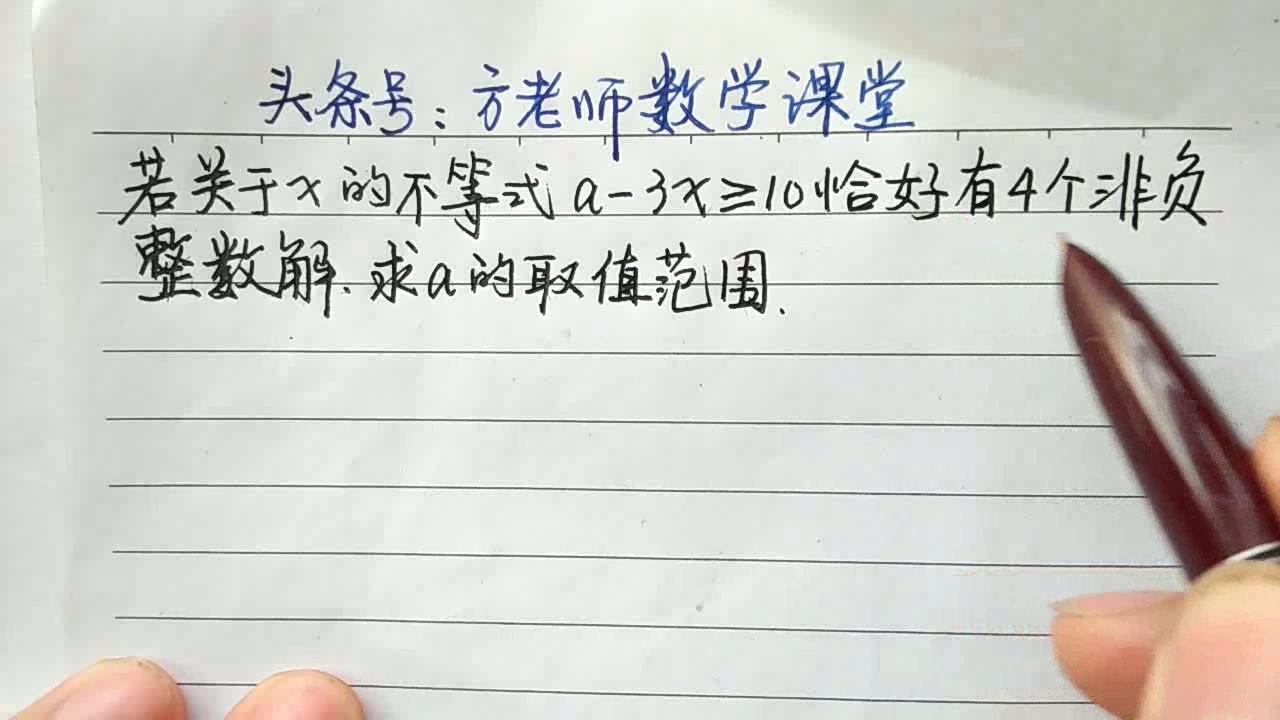 头条号：方老师数学课堂
若关于x的不等式a-3x≥10恰好有4个非负
整数解.求a的取值范围.